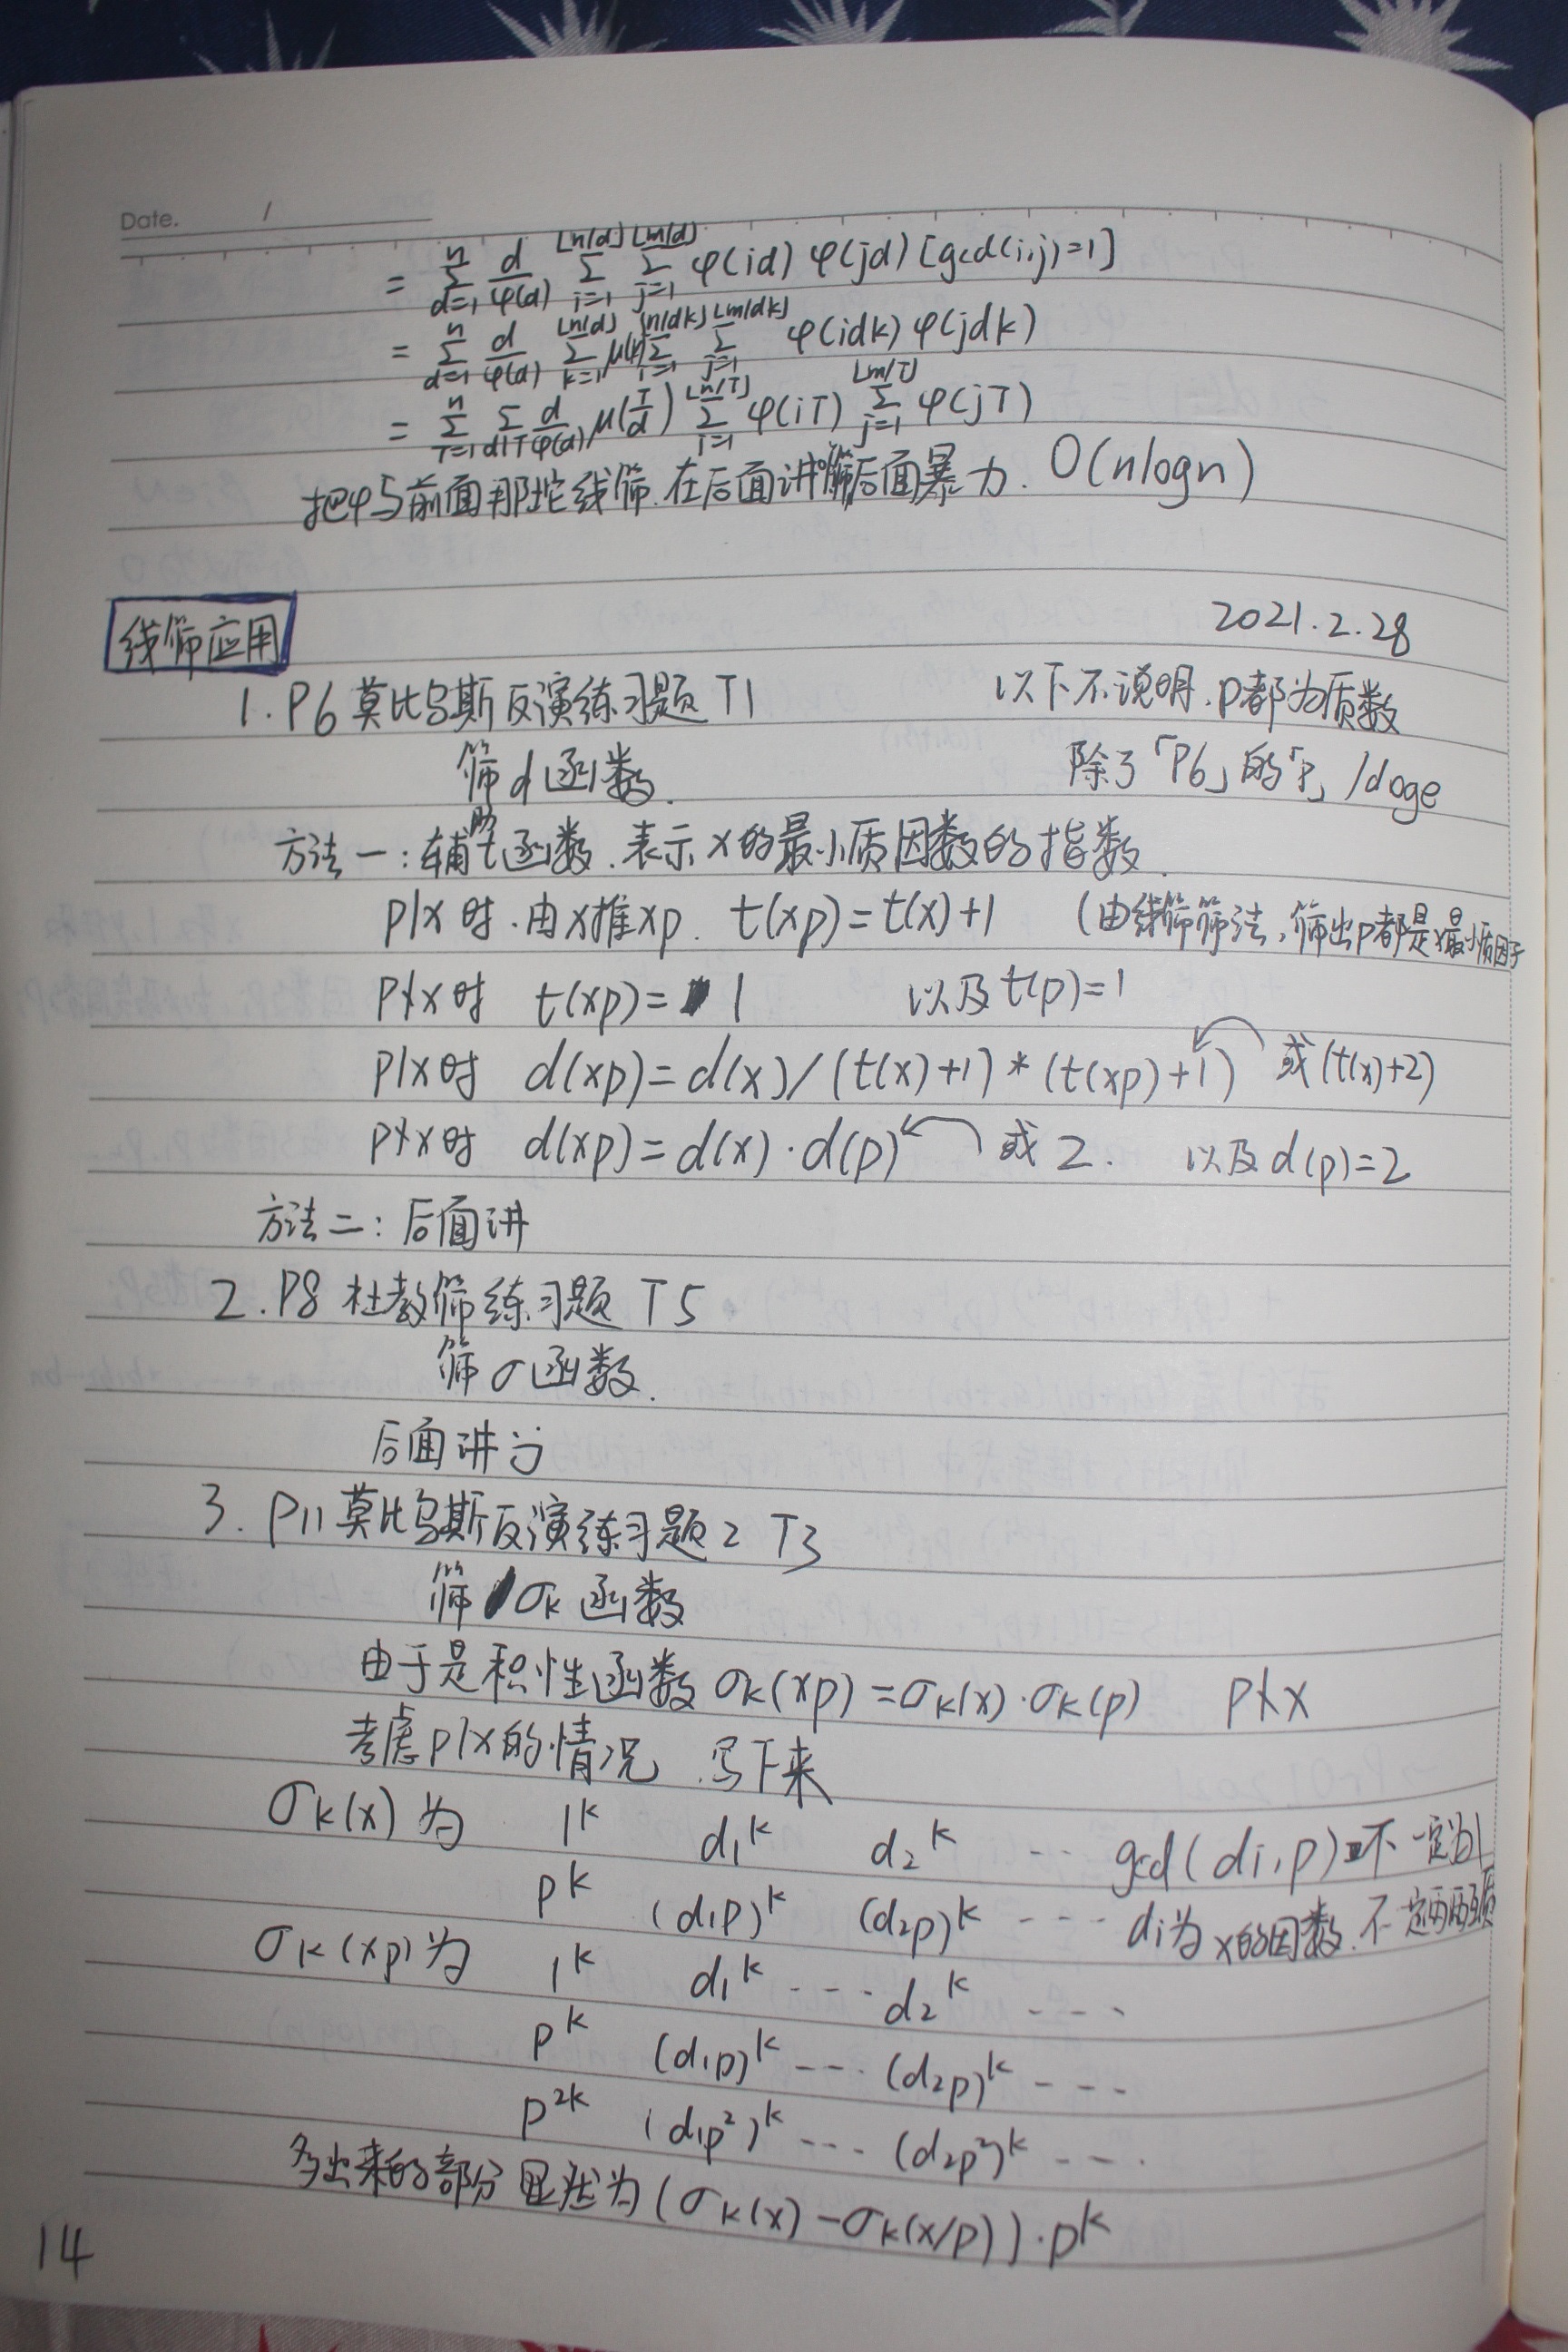 Date. /
= ∑_{d=1}^{n} d/φ(d) ∑_{i=1}^{⌊n/d⌋} ∑_{j=1}^{⌊m/d⌋} φ(id) φ(jd) [gcd(i,j)=1]
= ∑_{d=1}^{n} d/φ(d) ∑_{k=1}^{⌊n/d⌋} μ(k) ∑_{i=1}^{⌊n/dk⌋} ∑_{j=1}^{⌊m/dk⌋} φ(idk) φ(jdk)
= ∑_{T=1}^{n} ∑_{d|T} d/φ(d) μ(T/d) ∑_{i=1}^{⌊n/T⌋} φ(iT) ∑_{j=1}^{⌊m/T⌋} φ(jT)
把φ与前面那坨线筛.在后面讲 后面暴力. O(nlogn)
2021.2.28
线筛应用
1. P6 莫比乌斯反演练习题 T1 以下不说明.p都为质数
筛d函数. 除了「P6」的「P」/doge
方法一:辅助t函数.表示x的最小质因数的指数.
p|x时.由x推xp. t(xp)=t(x)+1 (由线筛筛法,筛出p都是x最小质因子
p∤x时 t(xp)=1 以及t(p)=1
p|x时 d(xp)=d(x)/(t(x)+1)*(t(xp)+1) 或(t(x)+2)
p∤x时 d(xp)=d(x)·d(p) 或2. 以及d(p)=2
方法二:后面讲
2. P8 杜教筛练习题 T5
筛σ函数.
后面讲
3. P11 莫比乌斯反演练习题2 T3
筛σk函数
由于是积性函数 σk(xp)=σk(x)·σk(p) p∤x
考虑p|x的情况.写下来
σk(x)为 1^k d₁^k d₂^k ··· gcd(di,p)不一定为1
p^k (d₁p)^k (d₂p)^k ··· di为x的因数.不一定两两互质
σk(xp)为 1^k d₁^k ··· d₂^k ····
p^k (d₁p)^k ··· (d₂p)^k ···
p^2k (d₁p²)^k ··· (d₂p²)^k ···
多出来的部分显然为(σk(x)-σk(x/p))·p^k
14